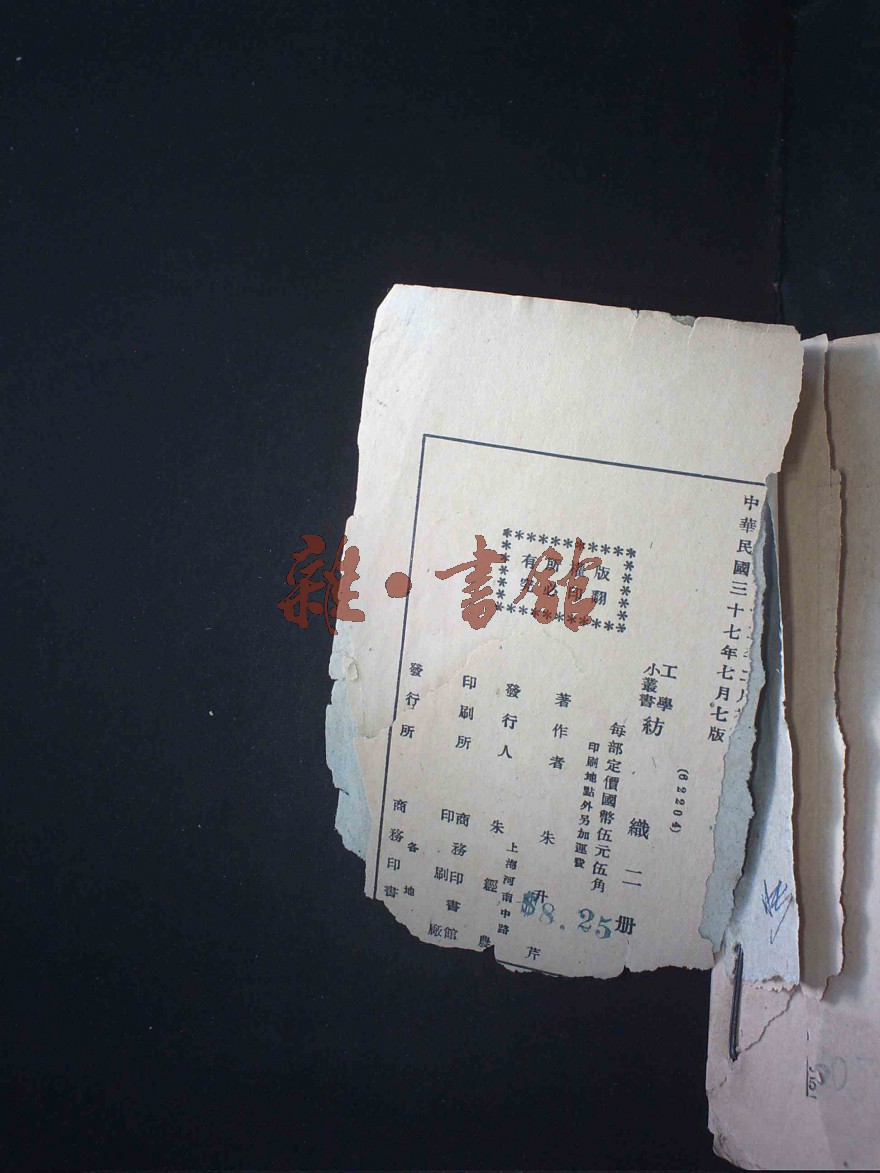 中華民國三十七年七月七版
(62204)
工學
小叢書
紡織二册
每部定價國幣伍元伍角
印刷地點外另加運費
$8.25
著作者 朱升芹
上海河南中路
發行人 朱經農
印刷所 商務印書館
印刷廠
發行所 各地
商務印書
版權所有
翻印必究
雜·書館